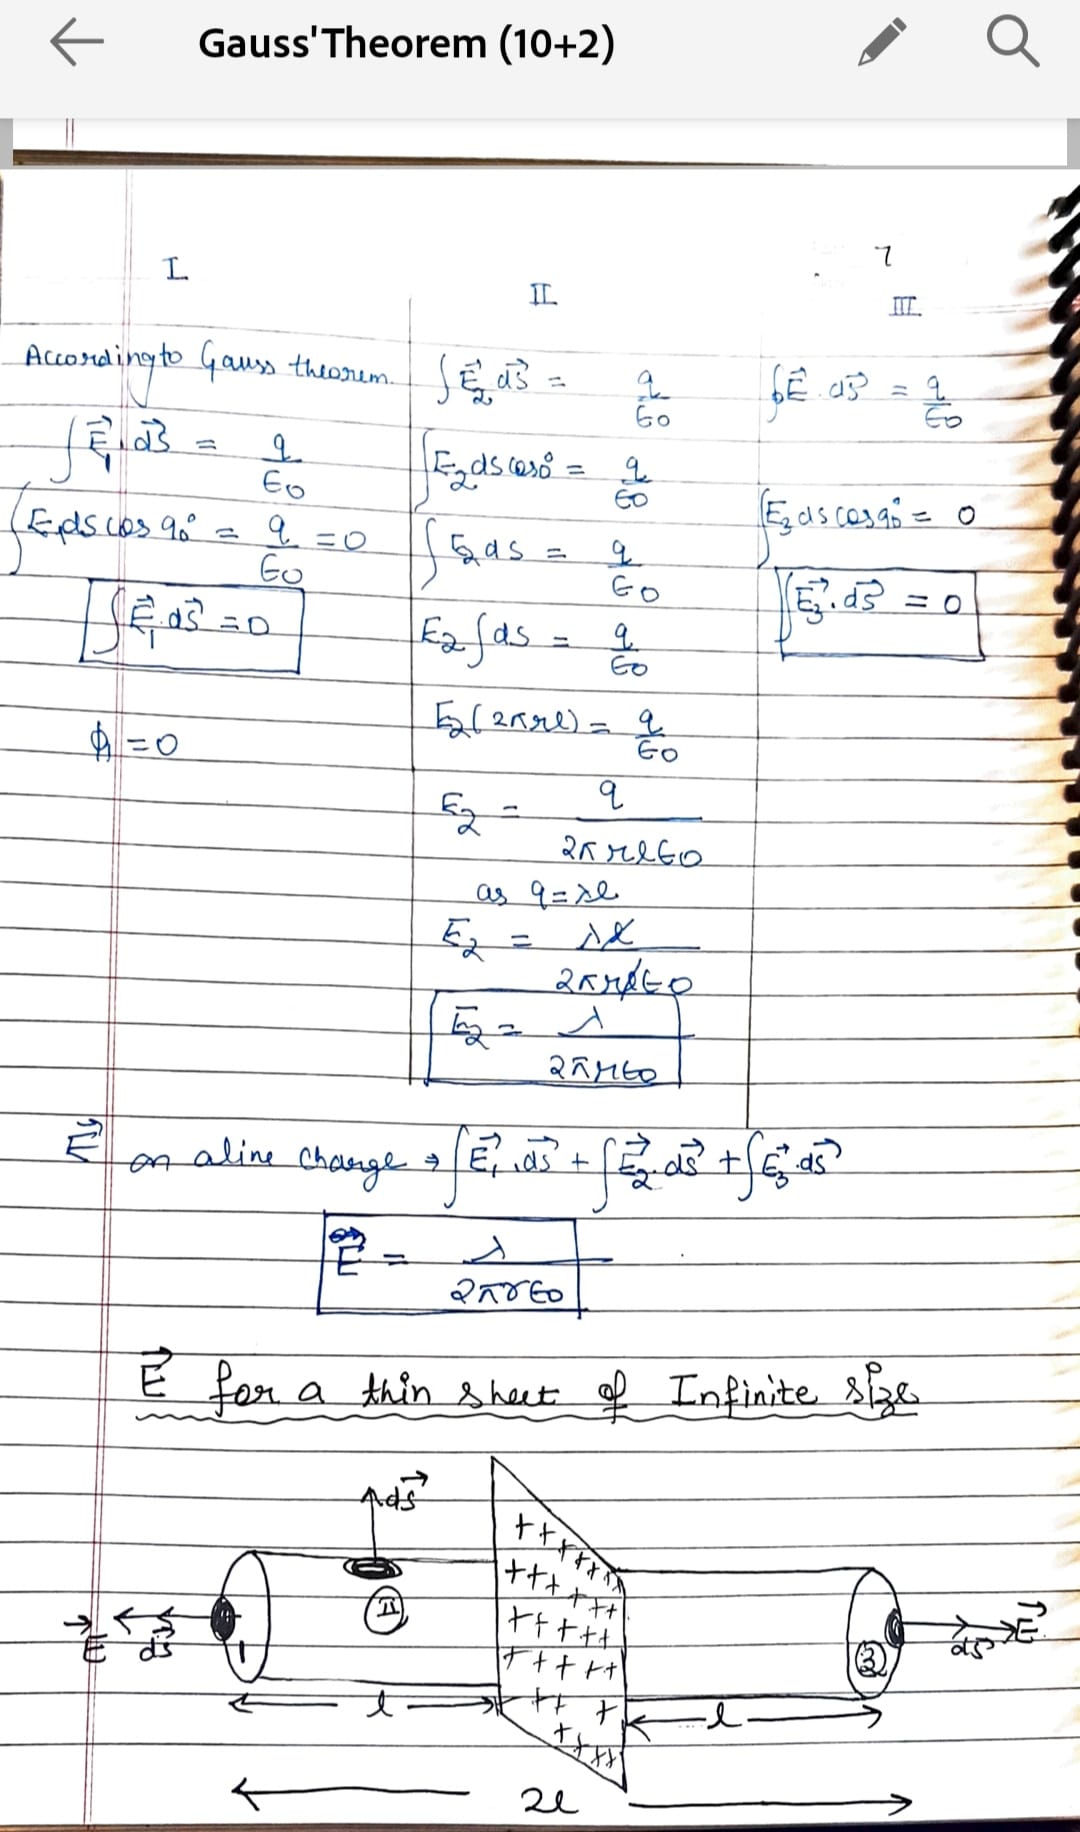 Gauss'Theorem (10+2)
7
I
According to Gauss theorem.
∫E₁⃗.ds⃗ = q/ε0
∫E₁ds cos 90° = q/ε0 = 0
∫E₁⃗.ds⃗ = 0
ϕ₁ = 0
II
∫E₂⃗.ds⃗ = q/ε0
∫E₂ds cos0° = q/ε0
∫E₂ds = q/ε0
E₂∫ds = q/ε0
E₂(2πrl) = q/ε0
E₂ = q/2πrlε0
as q=λl
E₂ = λl/2πrlε0
E₂ = λ/2πrε0
III
∮E⃗.ds⃗ = q/ε0
∫E₃ds cos90° = 0
∫E₃⃗.ds⃗ = 0
E⃗ on a line charge → ∫E₁⃗.ds⃗ + ∫E₂⃗.ds⃗ + ∫E₃⃗.ds⃗
E⃗ = λ/2πrε0
E⃗ for a thin sheet of Infinite size
ds⃗
II
E⃗ ds⃗
1
3
ds⃗ E⃗
l
l
2l